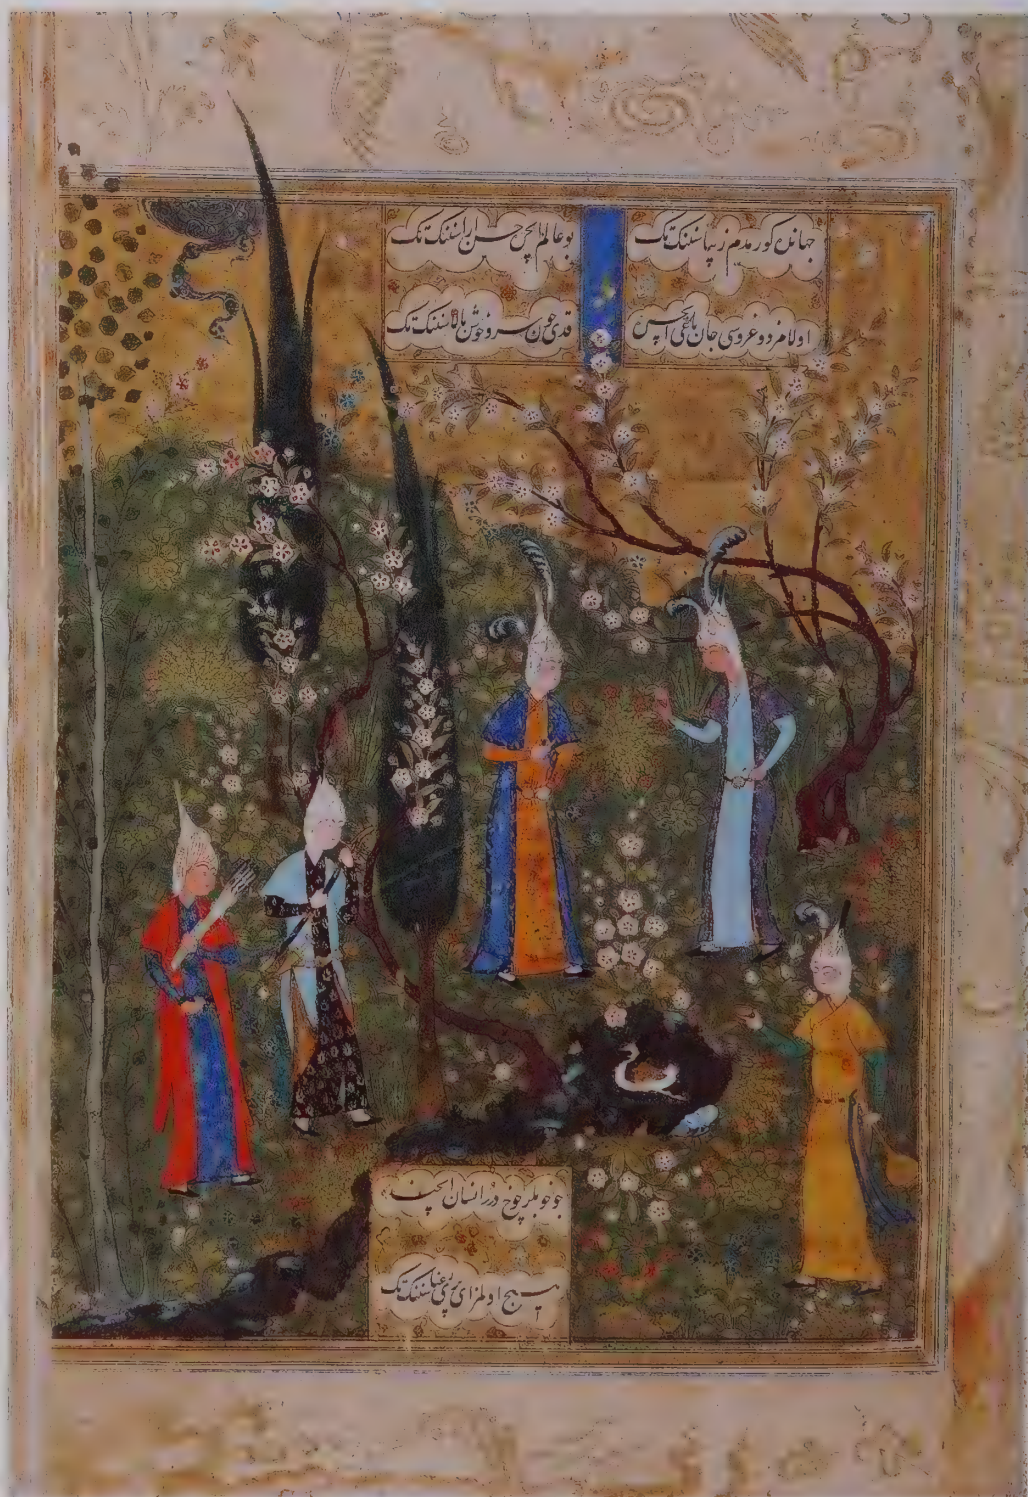 جهاندن کورمدم زیبا سننک تک
بو عالم ایچره حسن ارا سننک تک
اولامز دوغروسی جان باغی ایچره
قدی چون سرو خوش بالا سننک تک
خوبلر چوخ درر انسان
هیچ اولمز ای پری سننک تک